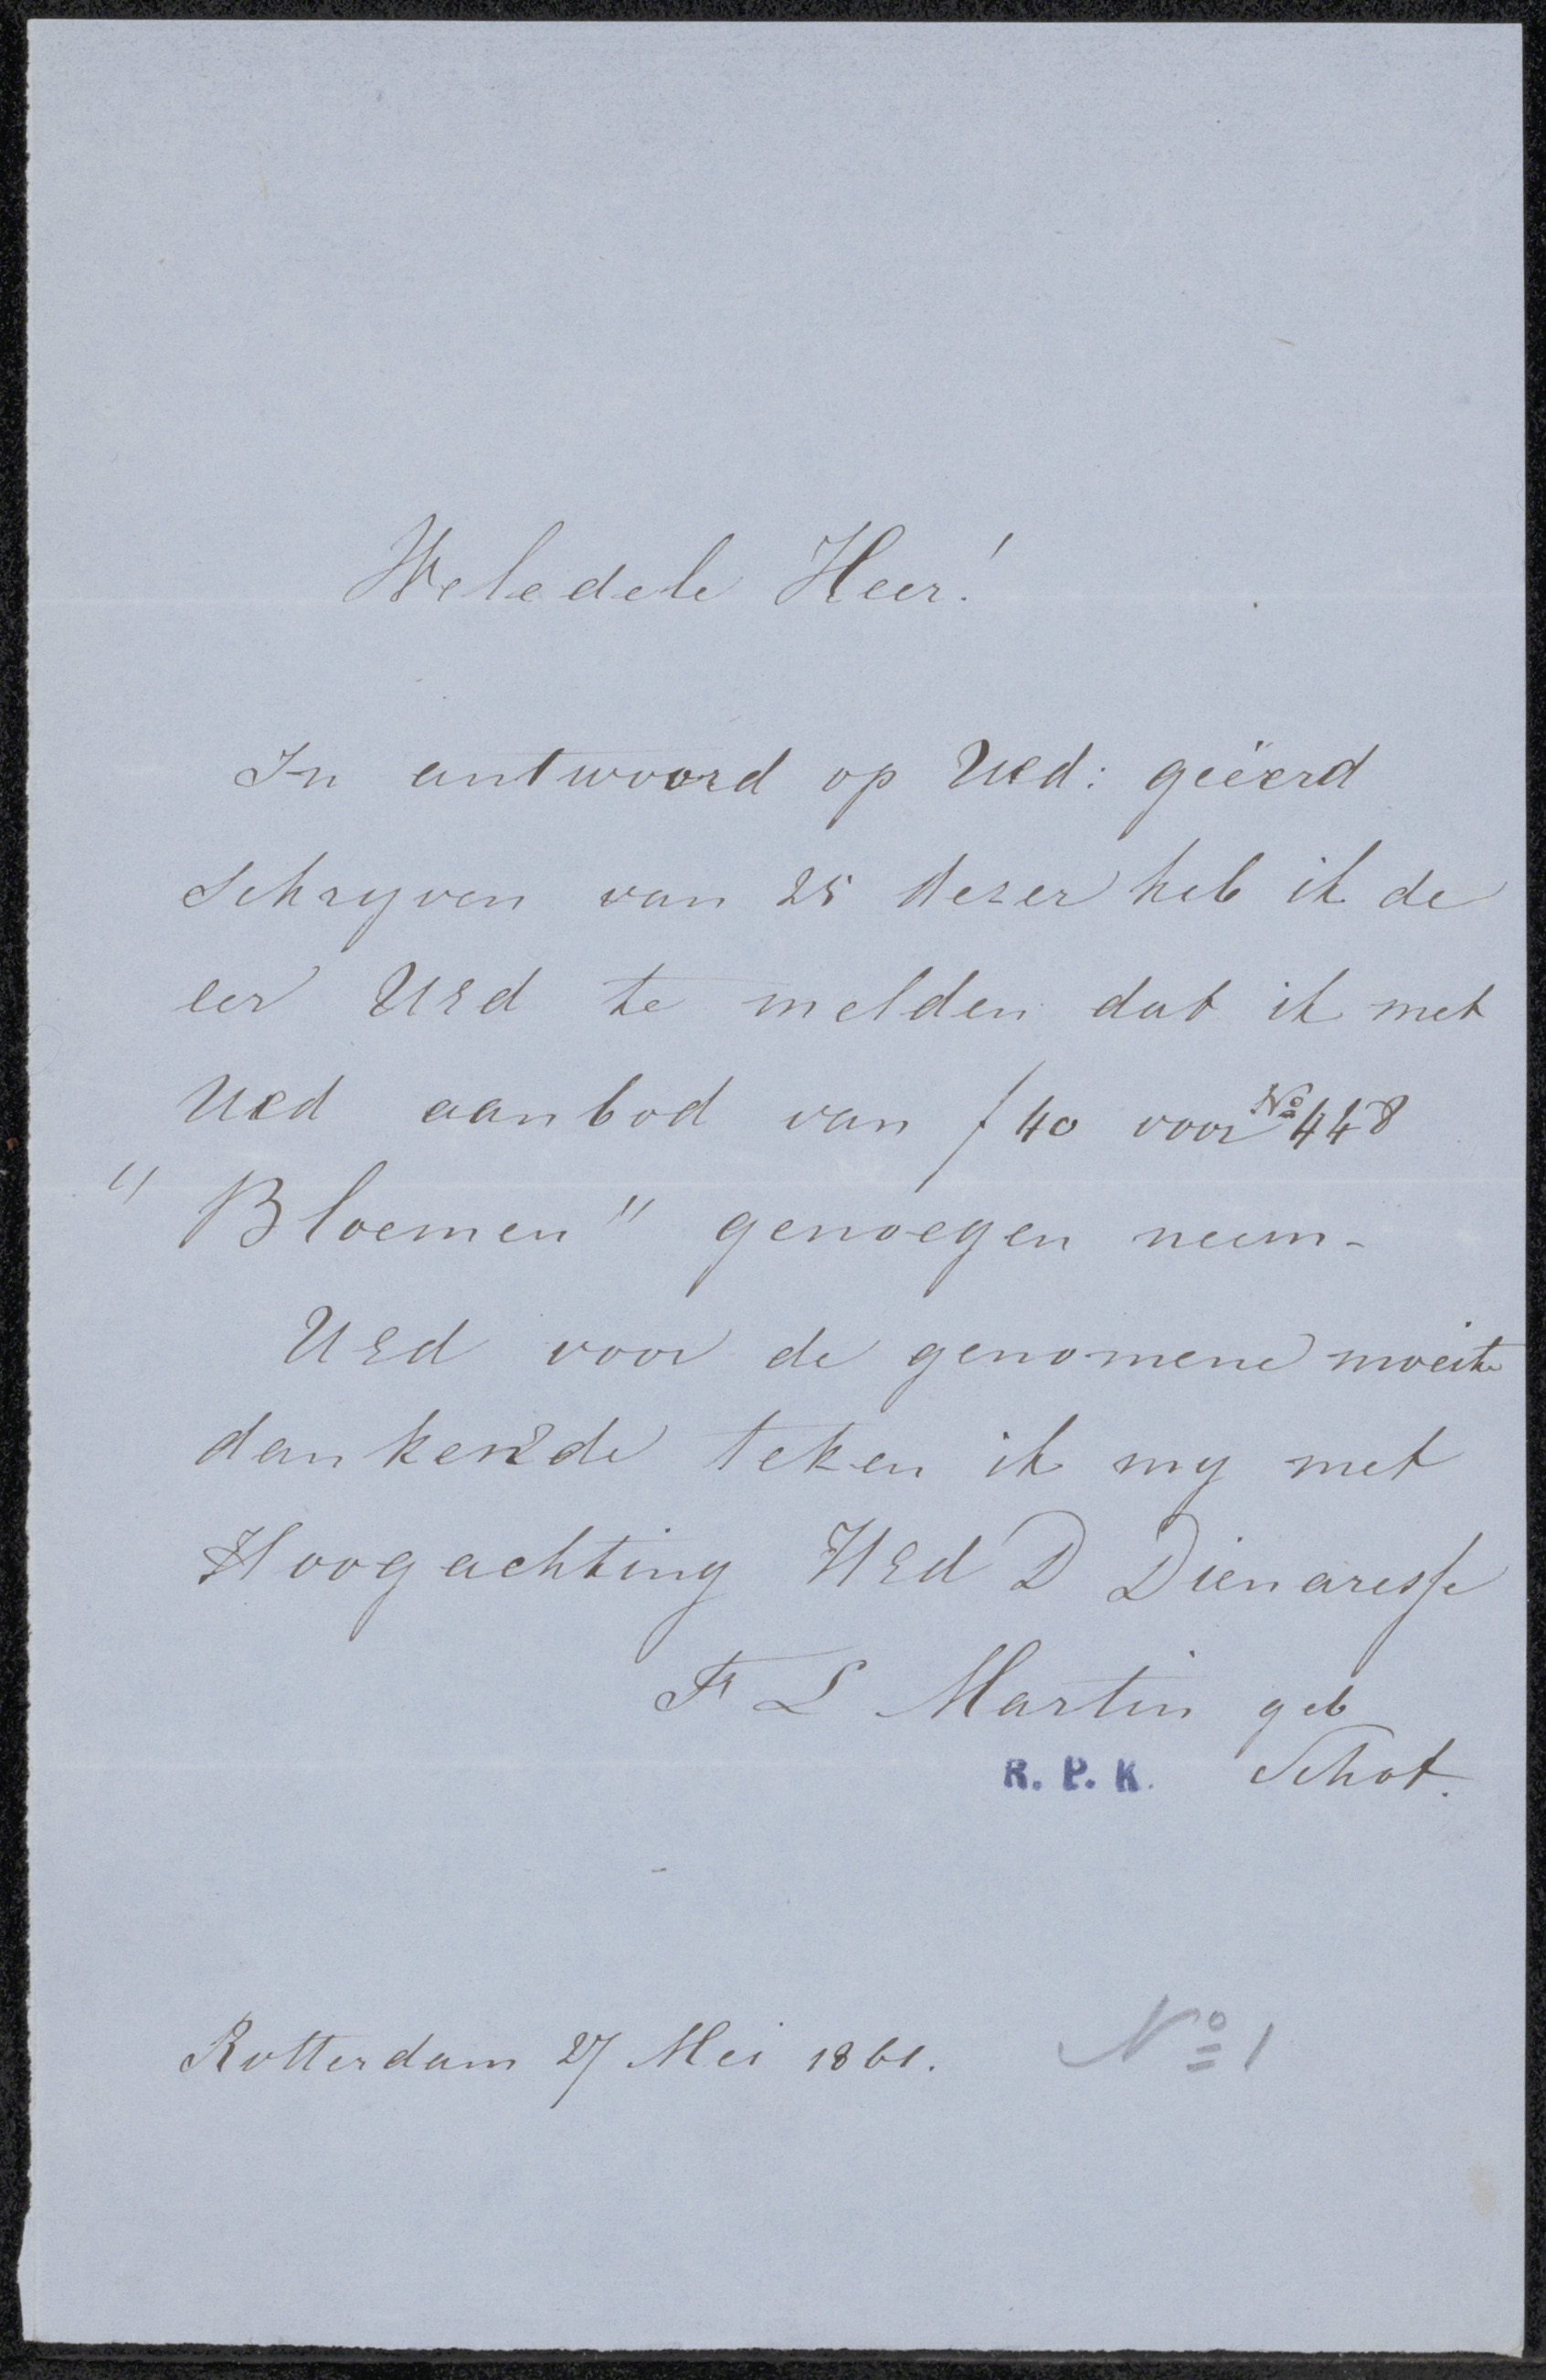 Weledele Heer!
In antwoord op UEd: geëerd
schryven van 25 dezer heb ik de
eer UEd te melden dat ik met
UEd aanbod van f 40 voor No 448
"Bloemen" genoegen neem -
UEd voor de genomene moeite
dankende teken ik my met
Hoogachting UEd D Dienaresse
F L Martin geb
R. P. K. Schot.
Rotterdam 27 Mei 1861. No 1